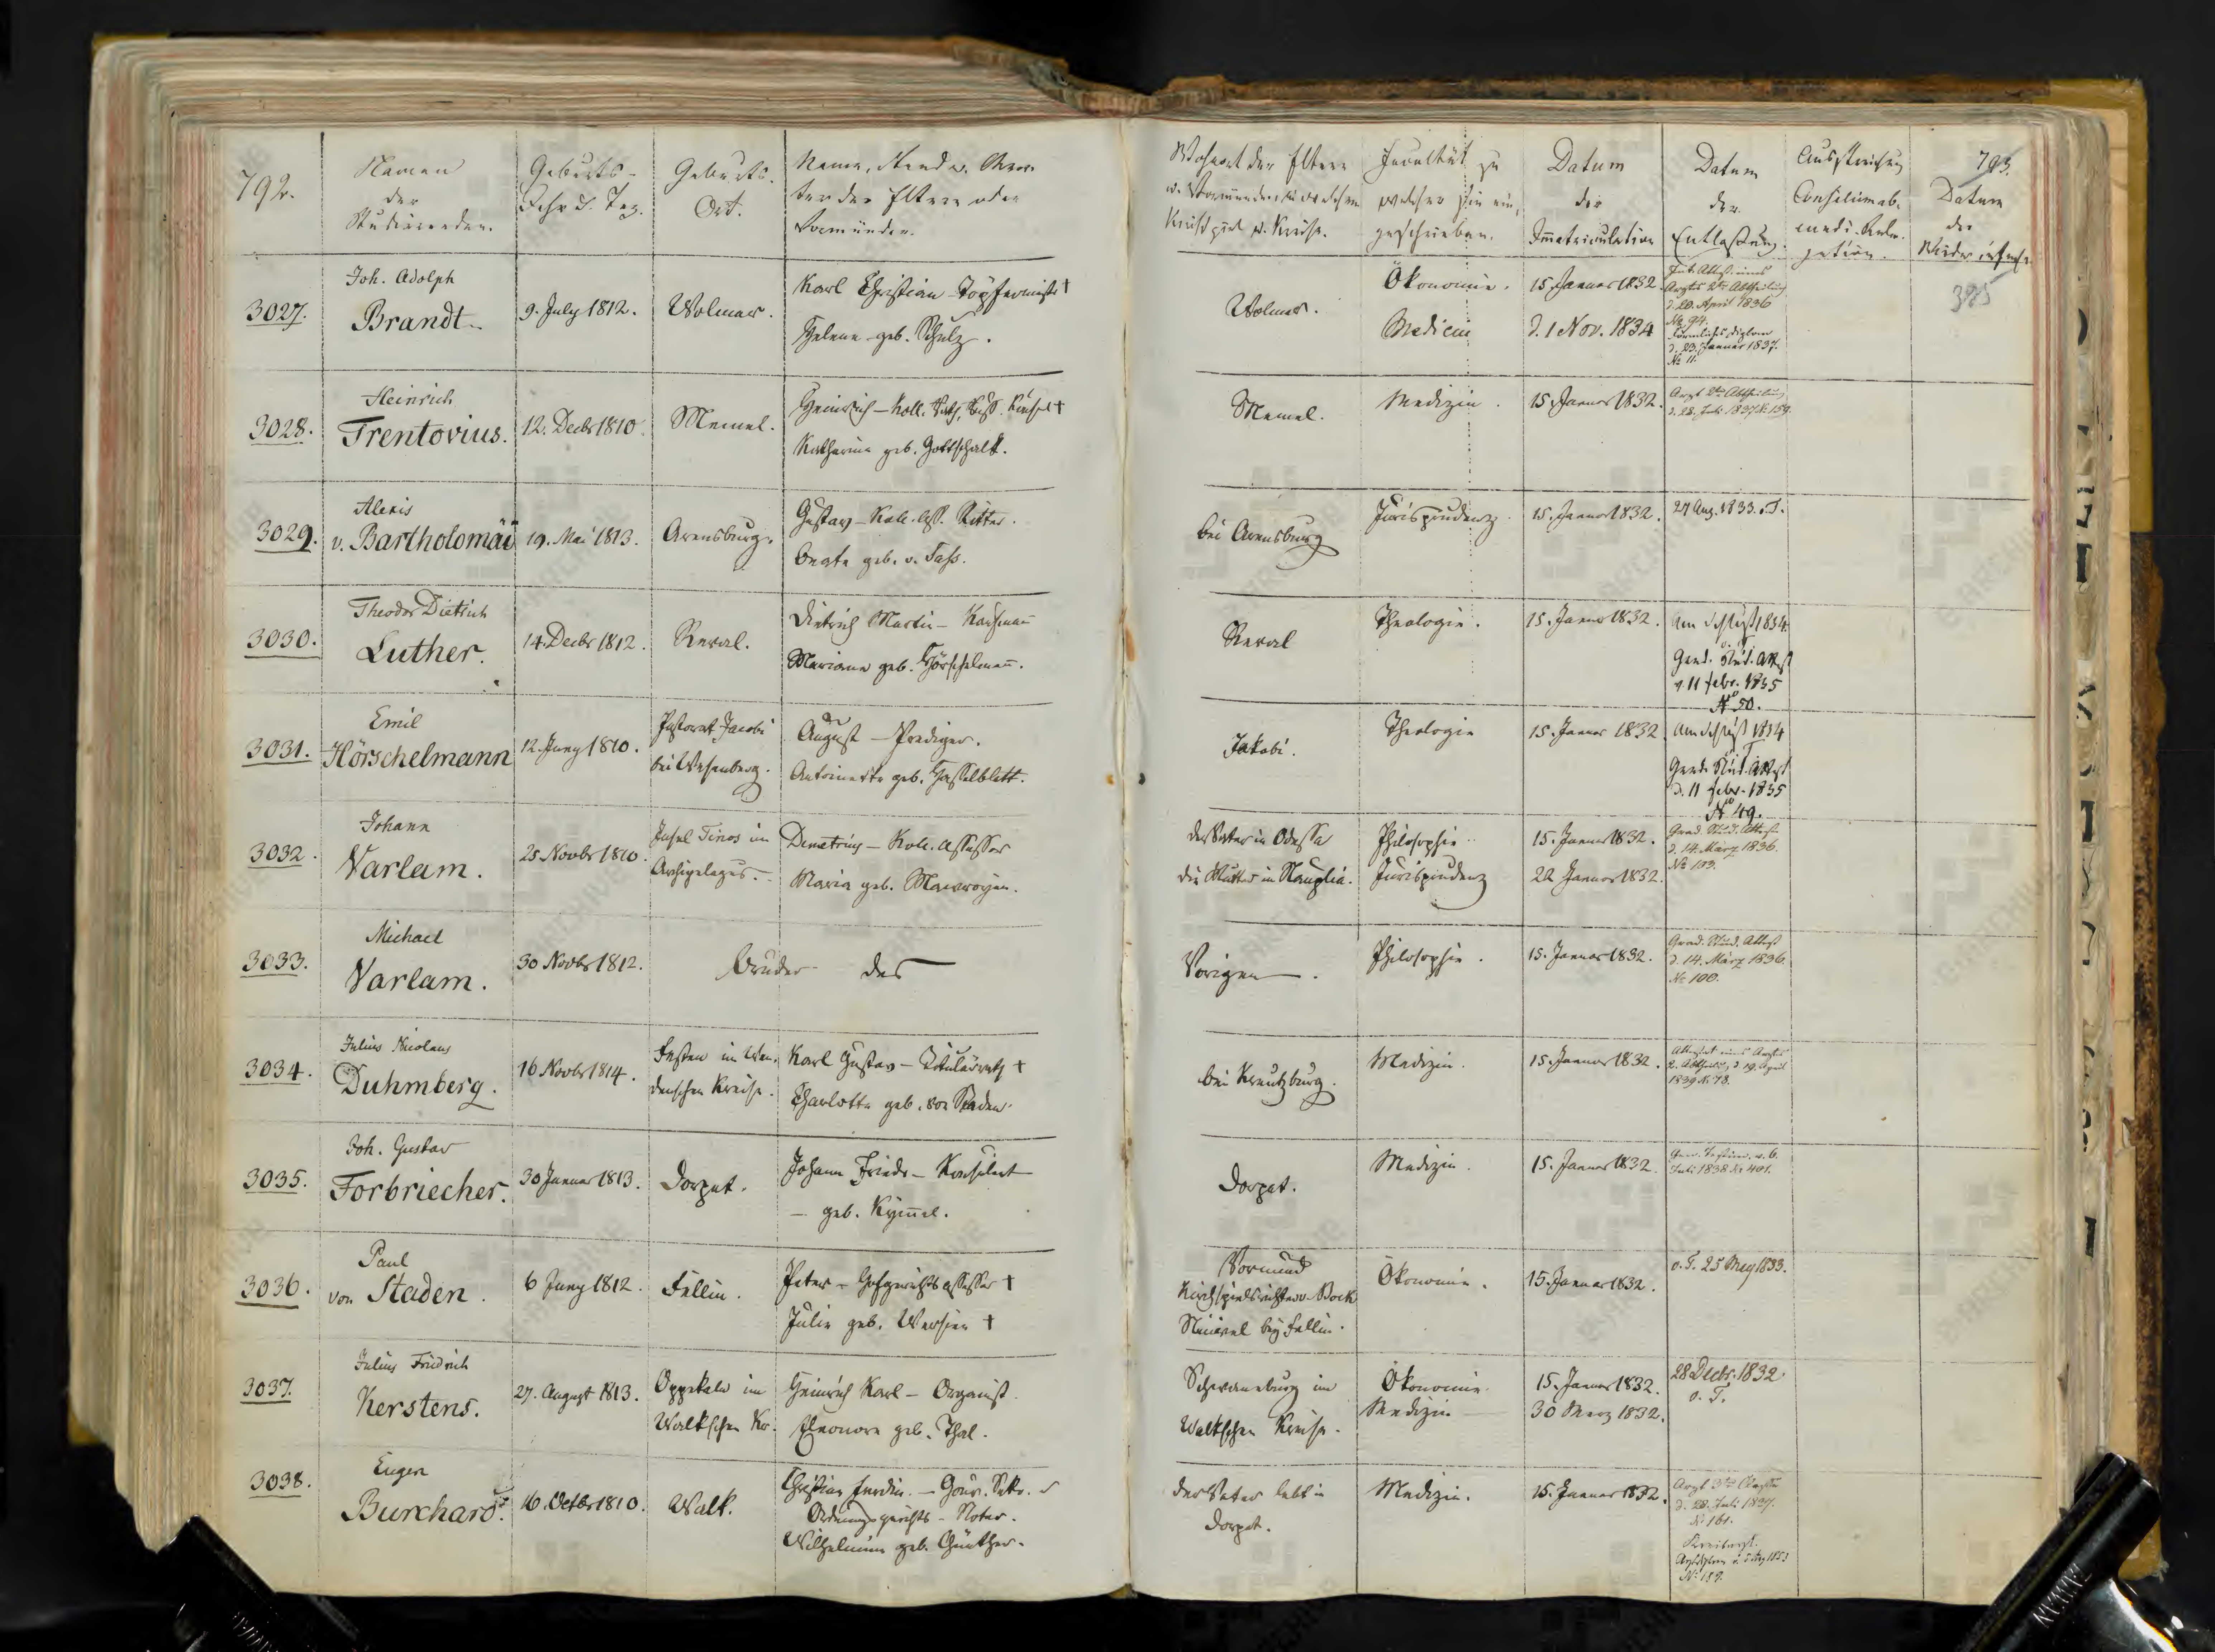 792.
Namen
der
Studierenden.
Geburts-
Jahr u. Tag.
Geburts-
Ort.
Name, Stand u. Charak-
ter der Eltern oder
Vormünder.
Wohnort der Eltern
u. Vormünder, in welchem
Kirchspiel u. Kreise.
Facultät zu
welcher sie ein-
geschrieben.
Datum
der
Immatriculation
Datum
der
Entlassung.
Ausstreichung
Consilium ab-
eundi. Rele-
gation.
793.
Datum
der
385
3027.
Joh. Adolph
Brandt.
9. July 1812.
Wolmar.
Karl Christian - Töpfermeister †
Helene geb. Schulz.
Wolmar.
Ökonomie.
Medicin
15. Januar 1832.
d. 1 Nov. 1834
d. 20. April 1836
№ 94.
d. 23. Januar 1837.
№ 11.
3028.
Heinrich
Trentovius.
12. Decbr 1810.
Memel.
Heinrich - Koll. Rath, Russ. Konsul †
Katharina geb. Gottschalk.
Memel.
Medizin.
15. Januar 1832.
Arzt 2ter Abtheilung
d. 28. Juli 1837 № 159.
3029.
Alexis
v. Bartholomäi
19. Mai 1813.
Arensburg.
Gustav - Koll. Ass. Ritter.
Beate geb. v. Sass.
bei Arensburg
Jurisprudenz.
15. Januar 1832.
27 Aug. 1833. o. T.
3030.
Theodor Dietrich
Luther.
14. Decbr 1812.
Reval.
Dietrich Martin - Kaufmann
Mariane geb. Hörschelmann.
Reval
Theologie.
15. Januar 1832.
Am Schluß 1834
o. T.
Grad. Stud. Attest
v. 11 febr. 1835
№ 50.
3031.
Emil
Hörschelmann
12. Juny 1810.
Pastorat Jacobi
bei Wesenberg.
August - Prediger.
Antoinette geb. Hasselblatt.
Jakobi.
Theologie
15. Januar 1832.
Am Schluß 1834
Grad. Stud. Attest
d. 11 febr. 1835
№ 49.
3032.
Johann
Varlam.
25 Novbr 1810.
Insel Tinos im
Archipelagus.
Demetrius - Koll. Assessor
Maria geb. Mavrojen.
der Vater in Odessa
die Mutter in Nauplia.
Philosophie
Jurisprudenz
15. Januar 1832.
22 Januar 1832.
Grad. Stud. Attest
d. 14. März 1836.
№ 103.
3033.
Michael
Varlam.
30 Novbr 1812.
Bruder des
Vorigen.
Philosophie.
15. Januar 1832.
Grad. Stud. Attest
d. 14. März 1836.
№ 100.
3034.
Julius Nicolaus
Duhmberg.
16 Novbr 1814.
Festen im Wen-
denschen Kreise.
Karl Gustav - Titulärrath †
Charlotte geb. von Staden.
bei Kreutzburg.
Medizin.
15. Januar 1832.
Attestat eines Arztes
2. Abtheilung d. 19. April
1839 № 73.
3035.
Joh. Gustav
Forbriecher.
30 Januar 1813.
Dorpat.
Johann Friedr. - Konsulent
- geb. Kymmel.
Dorpat.
Medizin.
15. Januar 1832.
Juli 1838 № 401.
3036.
Paul
von Staden.
6 Juny 1812.
Fellin.
Peter - Hofgerichtsassessor †
Julie geb. Wersien †
Vormund
Kirchspielsrichter v. Bock
bey Fellin.
Ökonomie.
15. Januar 1832.
o. T. 25 May 1833.
3037.
Julius Friedrich
Kerstens.
27. August 1813.
Oppekaln im
Walkschen Kr.
Heinrich Karl - Organist.
Eleonore geb. Thal.
Schwaneburg im
Walkschen Kreise.
Ökonomie
Medizin
15. Januar 1832.
30 Merz 1832.
28 Decbr. 1832
o. T.
3038.
Eugen
Burchard.
16 Octbr 1810.
Walk.
Christian Ferdin. - Gouv. Sekr. u
Ordnungsgerichts - Notar.
Wilhelmine geb. Günther.
der Vater lebt in
Dorpat.
Medizin.
15. Januar 1832.
d. 28. Juli 1837.
№ 161.
№ 189.